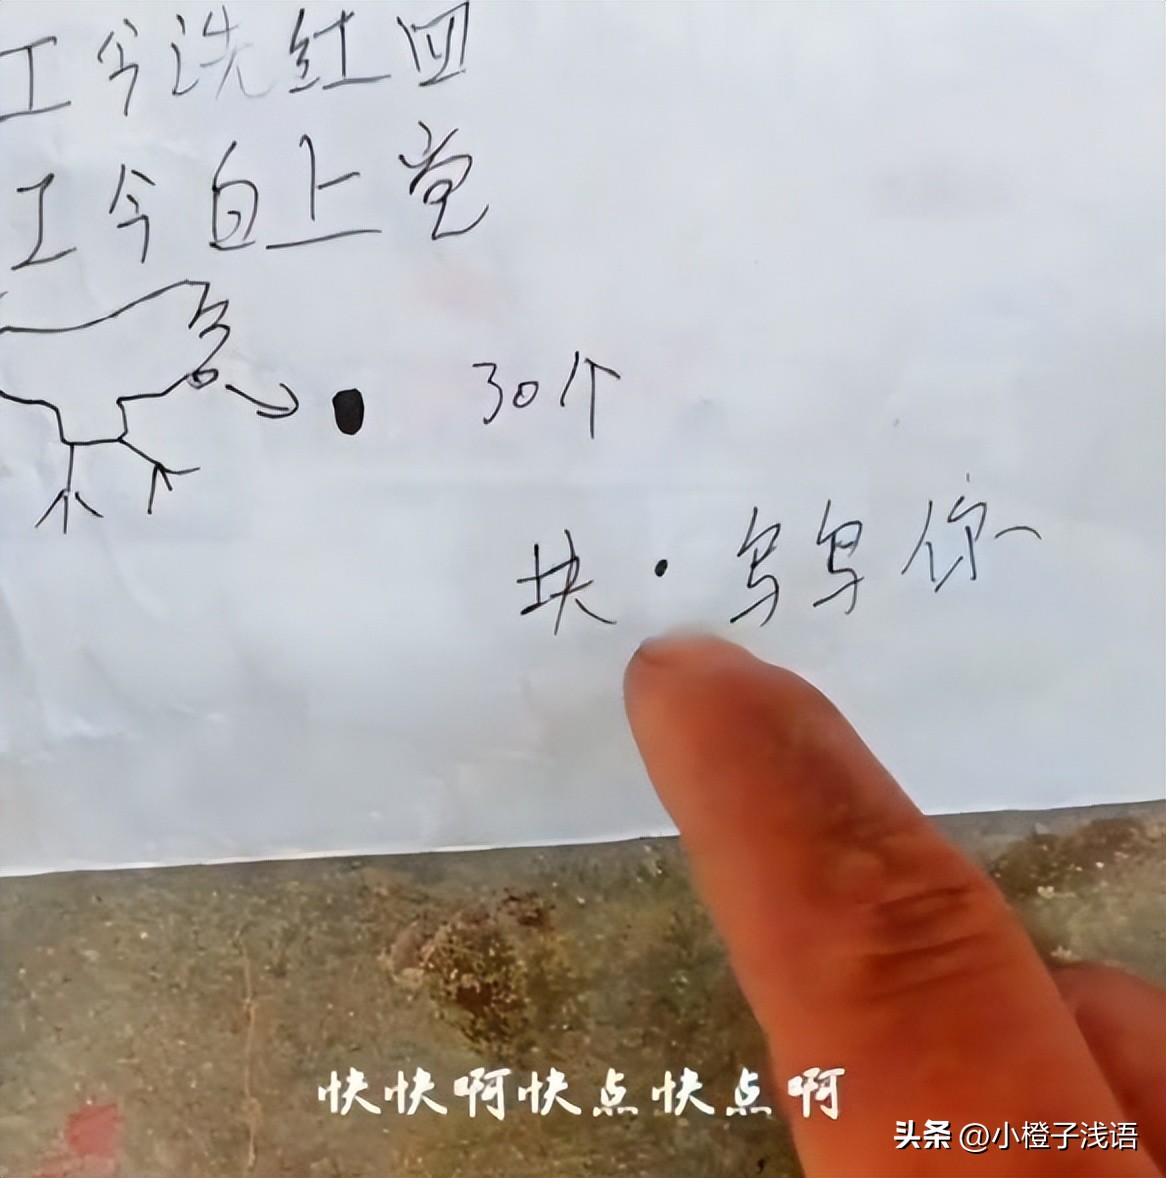 工今洗红四
工今白上党
30个
块·乌乌你
快快啊快点快点啊
头条 @小橙子浅语